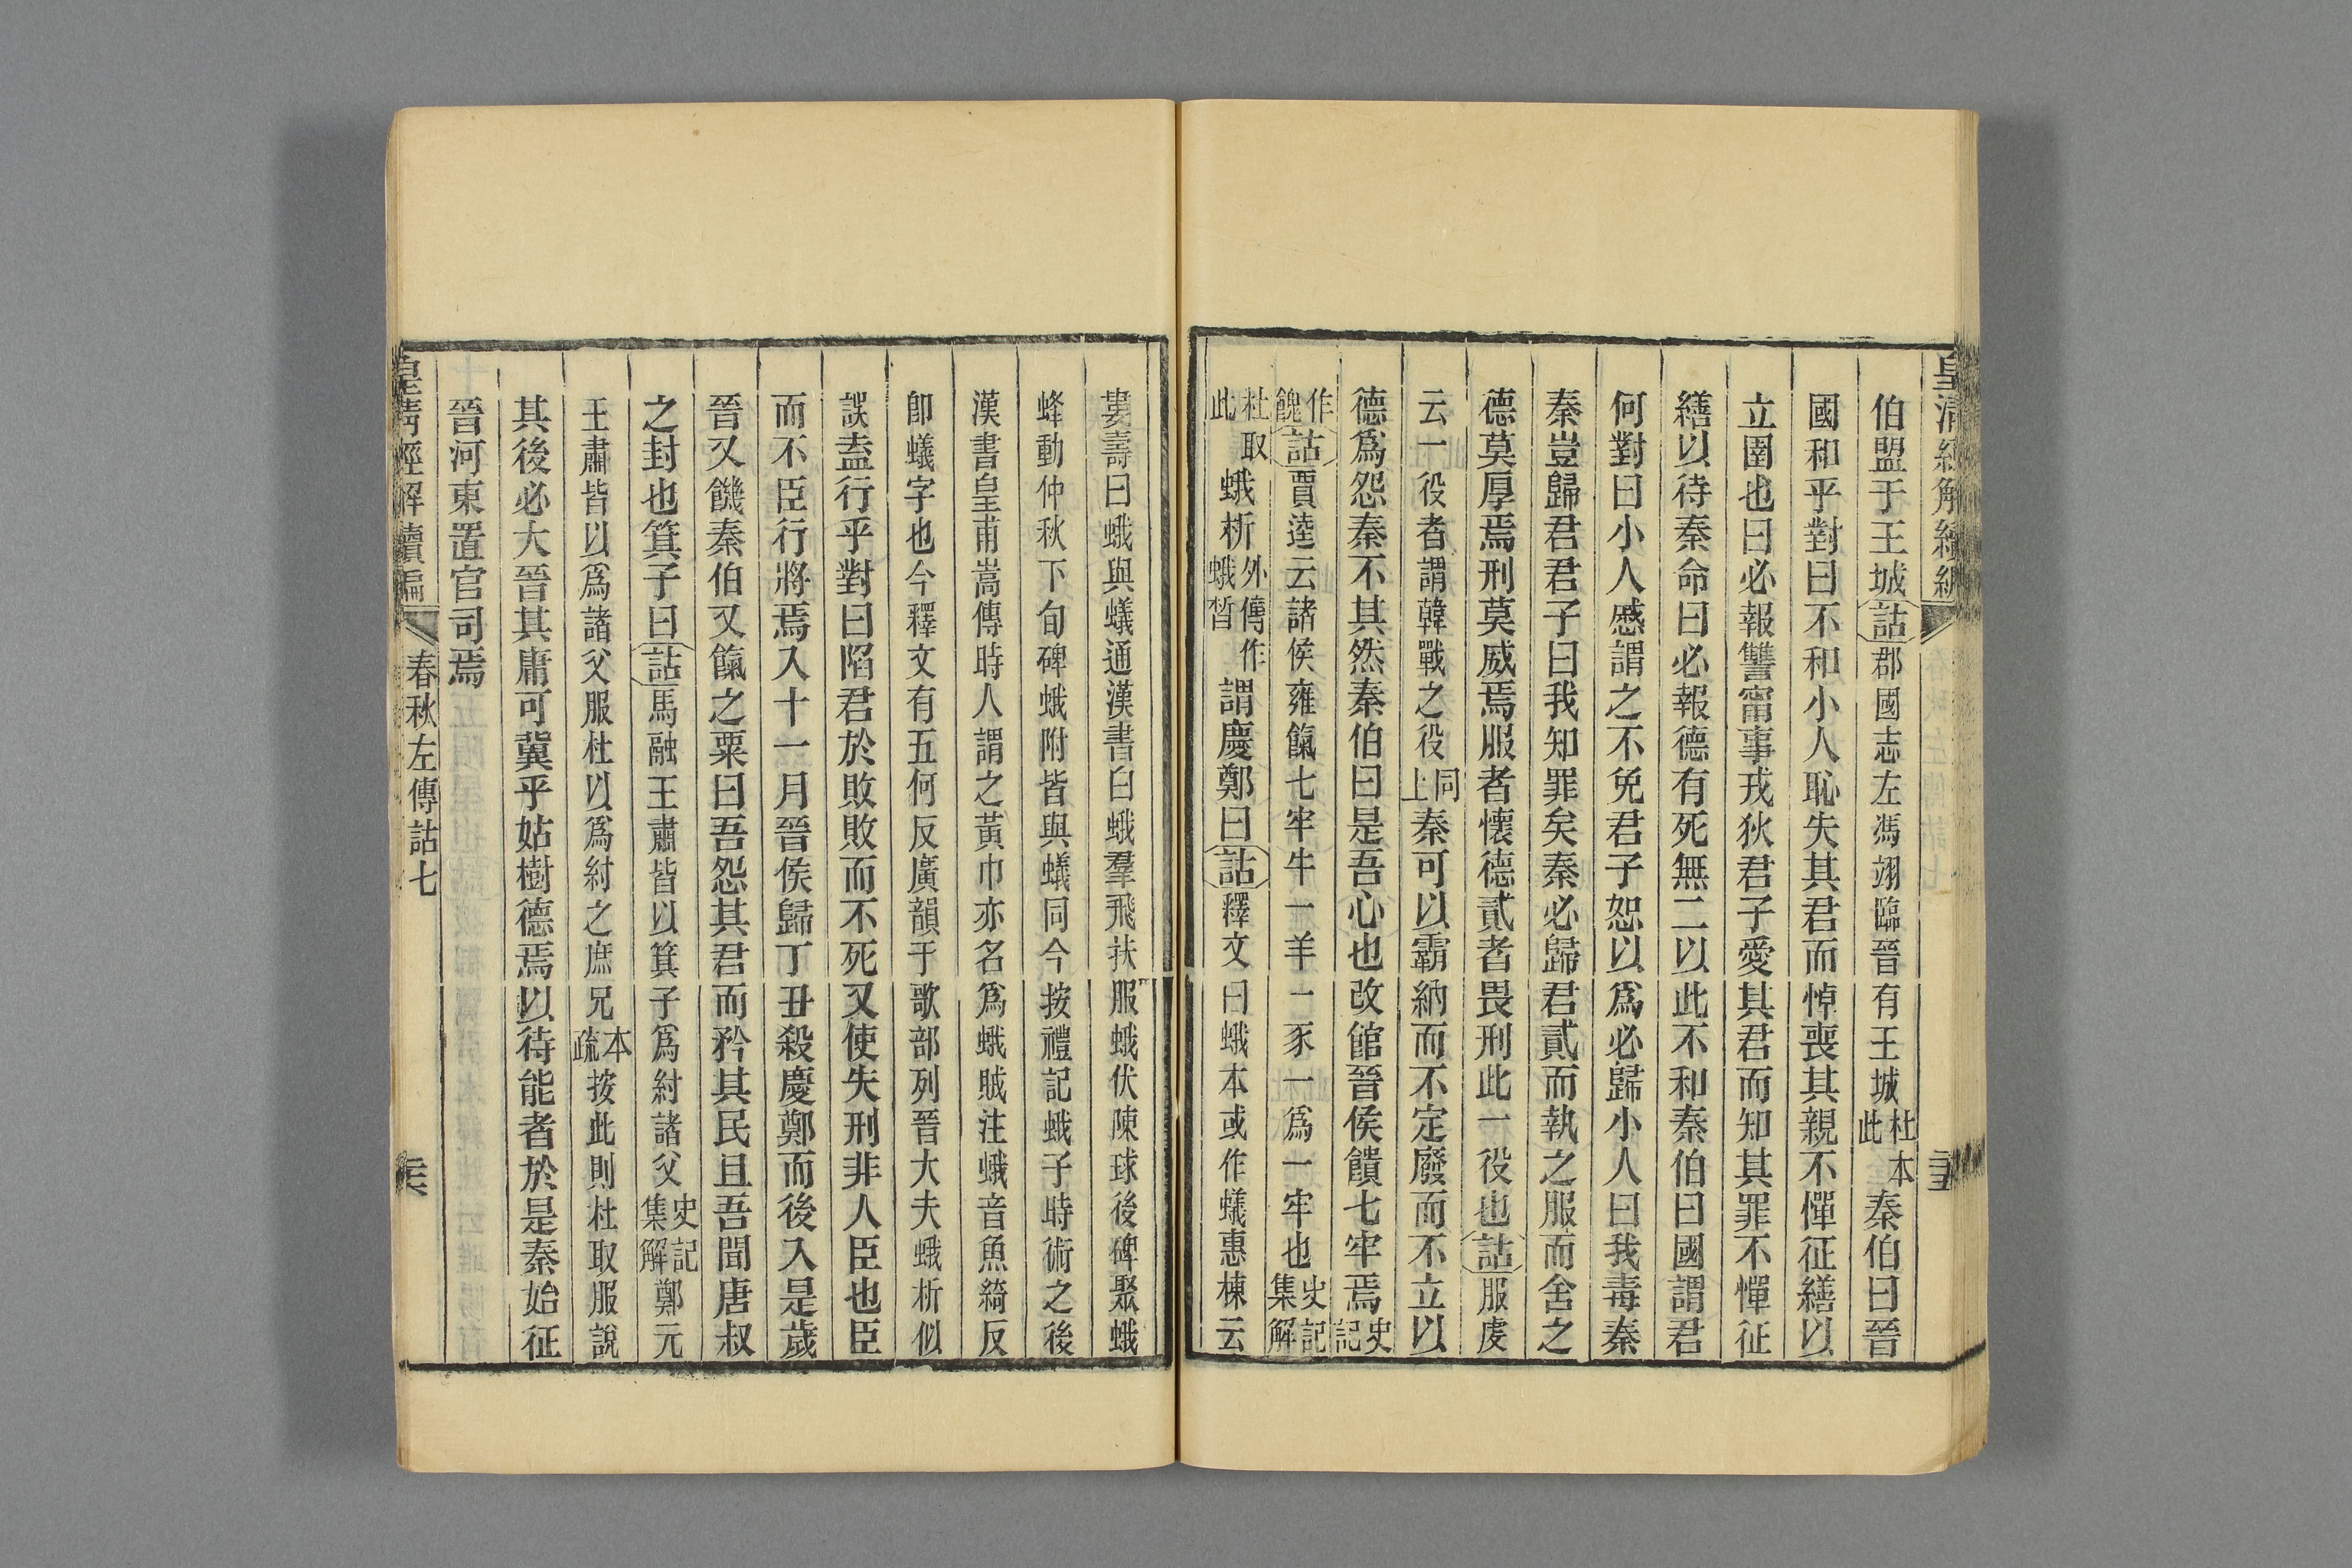 伯盟于王城詁郡國志左馮翊臨晉有王城杜本此秦伯曰晉
國和乎對曰不和小人恥失其君而悼喪其親不憚征繕以
立圉也曰必報讐甯事戎狄君子愛其君而知其罪不憚征
繕以待秦命曰必報德有死無二以此不和秦伯曰國謂君
何對曰小人慼謂之不免君子恕以爲必歸小人曰我毒秦
秦豈歸君君子曰我知罪矣秦必歸君貳而執之服而舍之
德莫厚焉刑莫威焉服者懷德貳者畏刑此一役也詁服虔
云一役者謂韓戰之役同上秦可以霸納而不定廢而不立以
德爲怨秦不其然秦伯曰是吾心也改館晉侯饋七牢焉史記
作餽詁賈逵云諸侯雍餼七牢牛一羊一豕一爲一牢也史記集解
杜取此蛾析外傳作蛾晳謂慶鄭曰詁釋文曰蛾本或作蟻惠棟云
婁壽曰蛾與蟻通漢書白蛾羣飛扶服蛾伏陳球後碑聚蛾
蜂動仲秋下旬碑蛾附皆與蟻同今按禮記蛾子時術之後
漢書皇甫嵩傳時人謂之黃巾亦名爲蛾賊注蛾音魚綺反
卽蟻字也今釋文有五何反廣韻于歌部列晉大夫蛾析似
誤盍行乎對曰陷君於敗敗而不死又使失刑非人臣也臣
而不臣行將焉入十一月晉侯歸丁丑殺慶鄭而後入是歲
晉又饑秦伯又餼之粟曰吾怨其君而矜其民且吾聞唐叔
之封也箕子曰詁馬融王肅皆以箕子爲紂諸父史記集解鄭元
王肅皆以爲諸父服杜以爲紂之庶兄本疏按此則杜取服說
其後必大晉其庸可冀乎姑樹德焉以待能者於是秦始征
晉河東置官司焉
皇淸經解續編 春秋左傳詁七